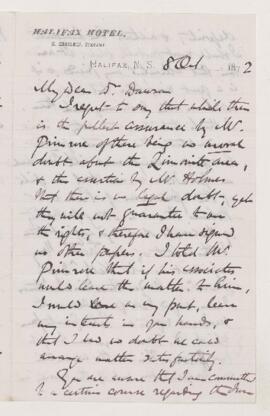 HALIFAX HOTEL,
HALIFAX, N. S. 8 Oct 1872
My Dear Dr Dawson
I regret to say that while there
is the fullest assurance by Mr
Primrose of there being no moral
doubt about the area,
& the assertion by Mr Holmes
that there is no legal doubt, yet
they will not guarantee to me
the rights, & therefore I have signed
no other papers. I told Mr
Primrose that if his associates
would leave the matter to him,
I would on my part, leave
my interests in your hands, &
that I had no doubt we could
arrange matters satisfactorily.
You are aware that I am committed
to a certain course regarding the